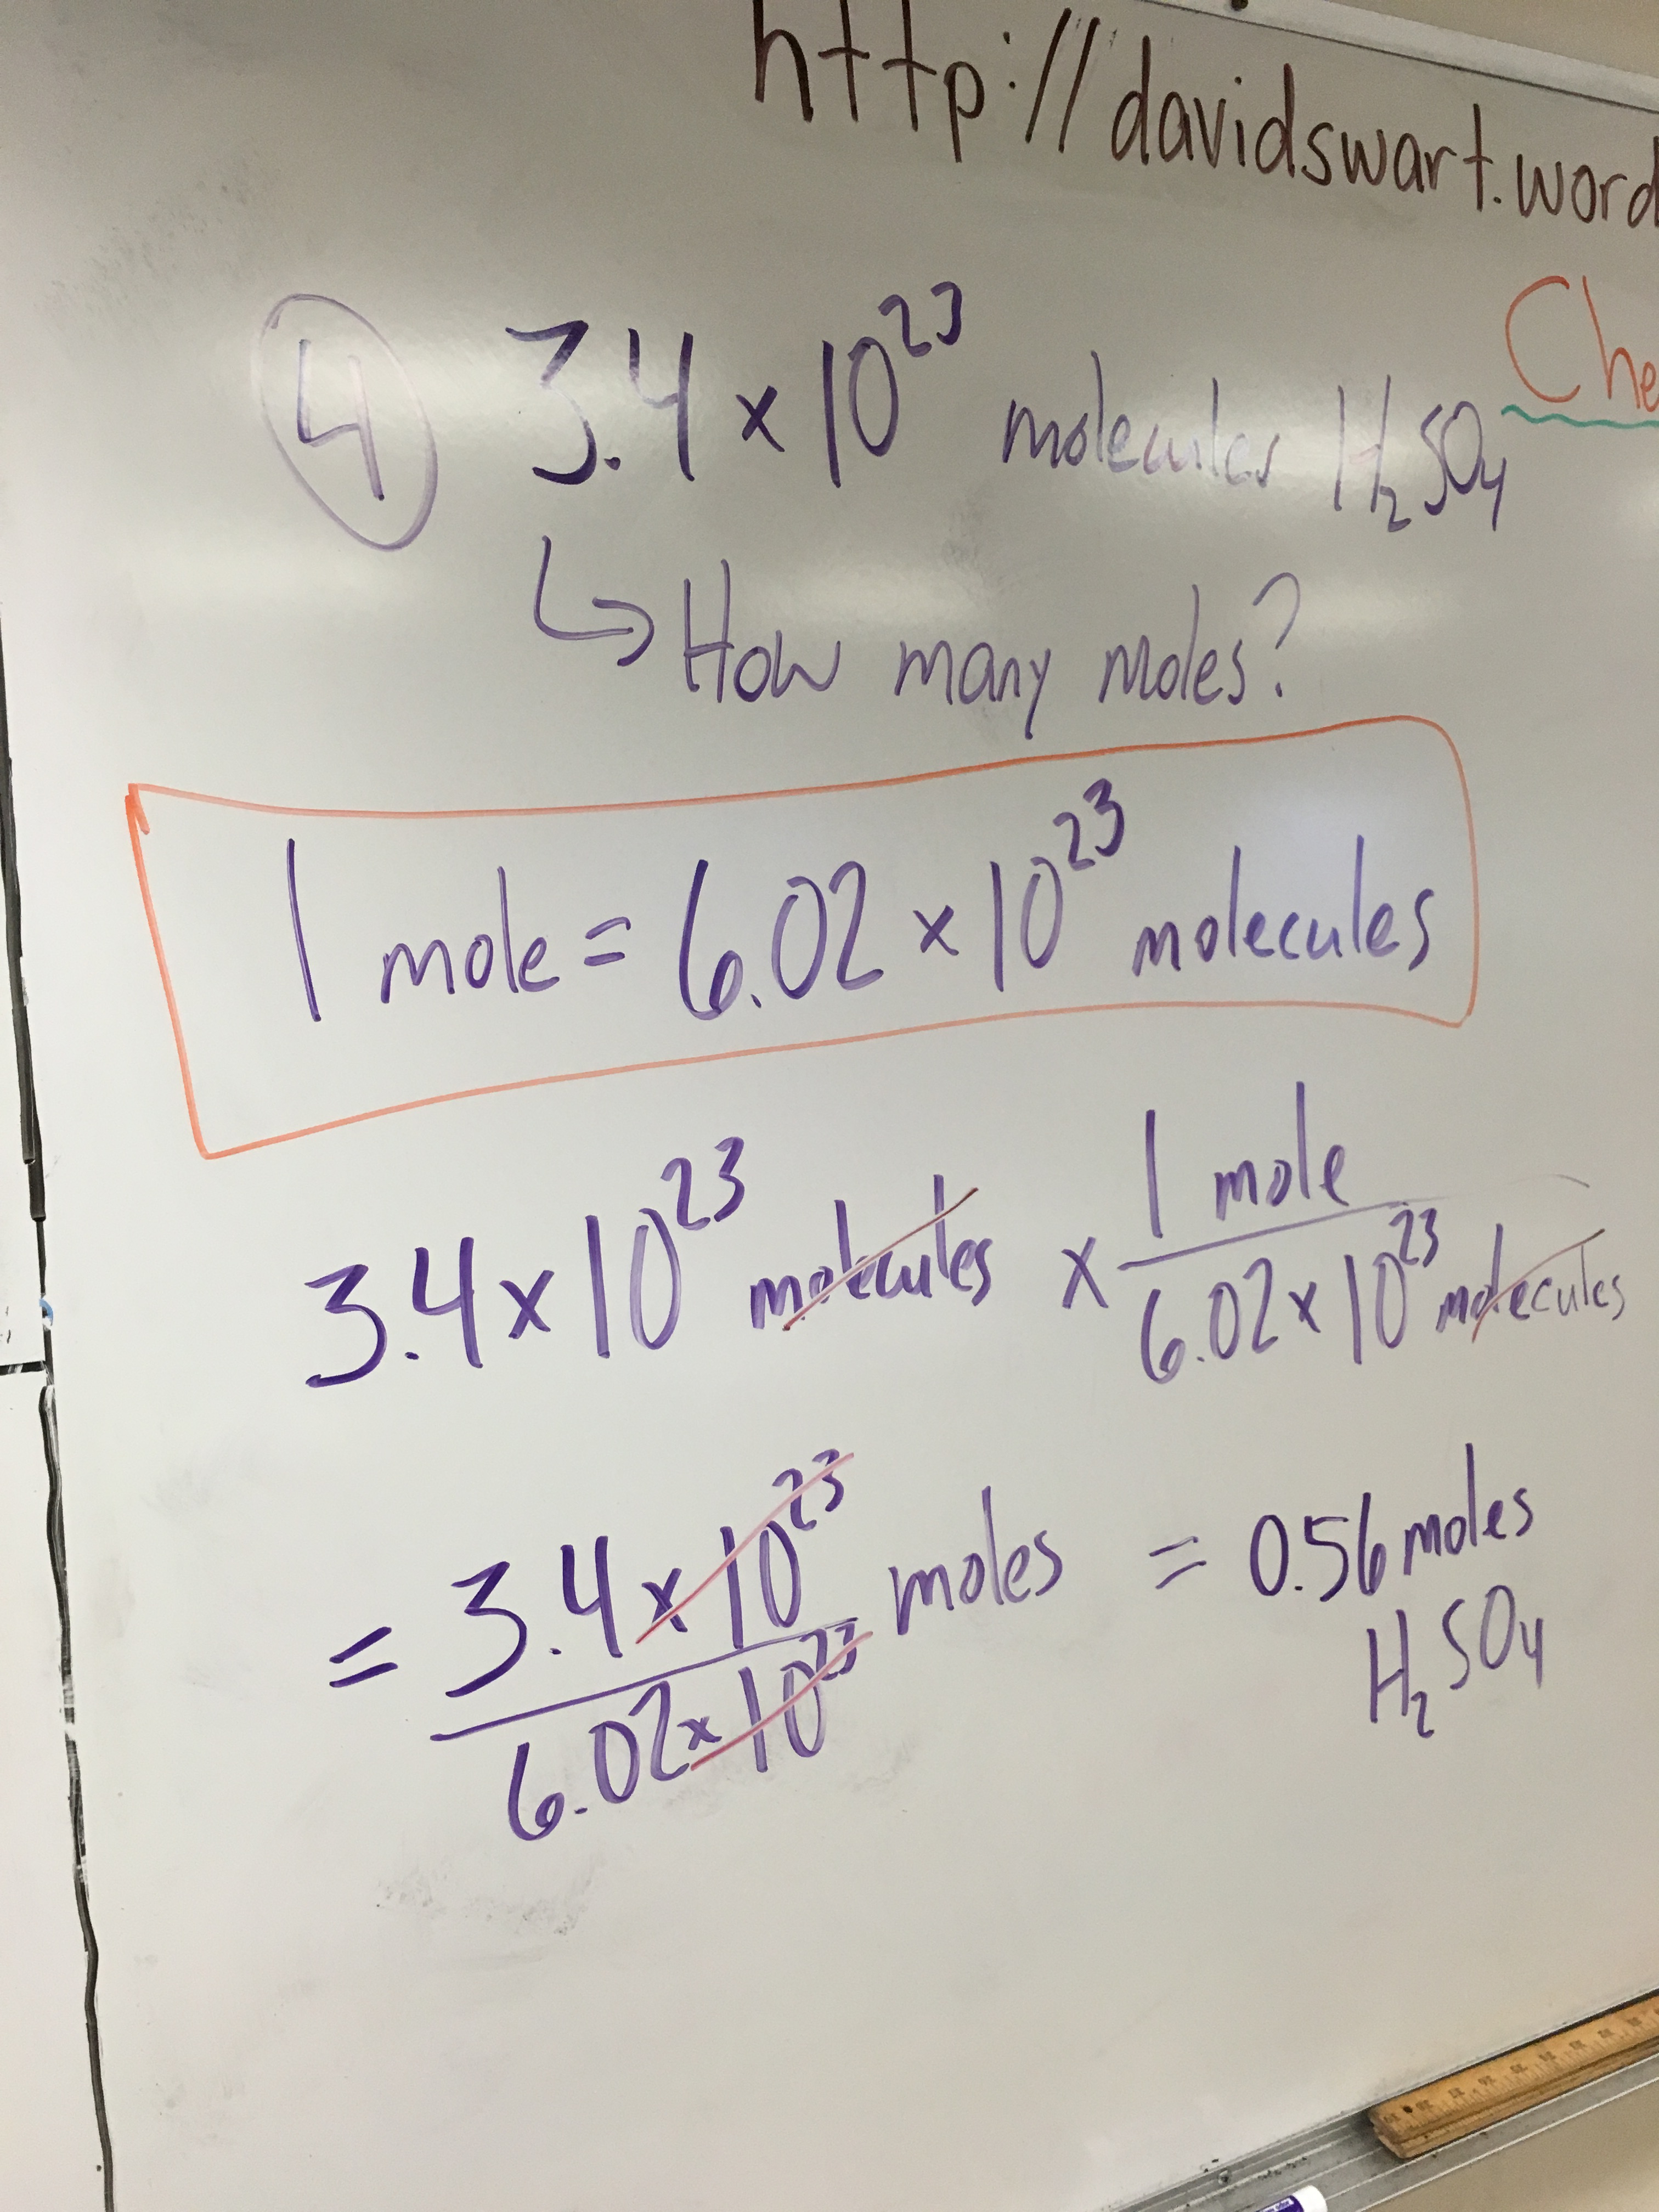 http://davidswart.word
Che
④ 3.4 × 10²³ molecules H₂SO₄
↳ How many moles?
1 mole = 6.02 × 10²³ molecules
3.4 × 10²³ molecules × 1 mole / 6.02 × 10²³ molecules
= 3.4 × 10²³ / 6.02 × 10²³ moles = 0.56 moles
H₂SO₄